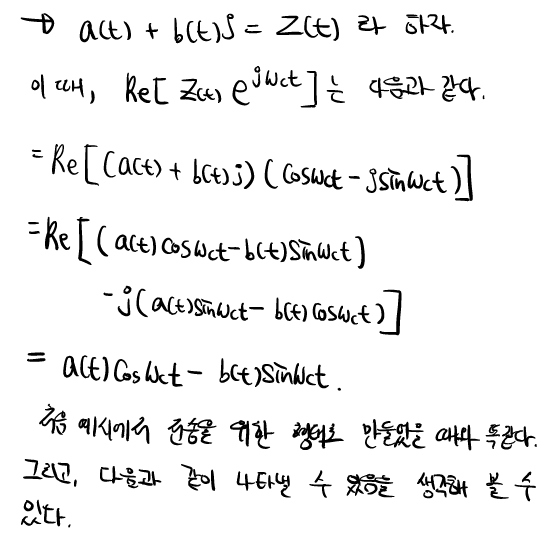 → a(t) + b(t)j = Z(t) 라 하자.
이 때, Re[ Z(t) e^{jωct} ]는 다음과 같다.
= Re[(a(t) + b(t)j) (cosωct - jsinωct)]
= Re[(a(t)cosωct - b(t)sinωct)
-j(a(t)sinωct - b(t)cosωct)]
= a(t)cosωct - b(t)sinωct.
처음 예시에서 전송을 위한 형태로 만들었을 때와 똑같다.
그리고, 다음과 같이 나타낼 수 있음을 생각해 볼 수
있다.